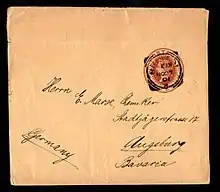 Herrn E. Marx, Chemiker
Stadtjägerstrasse 17
Augsburg
Bavaria
Germany